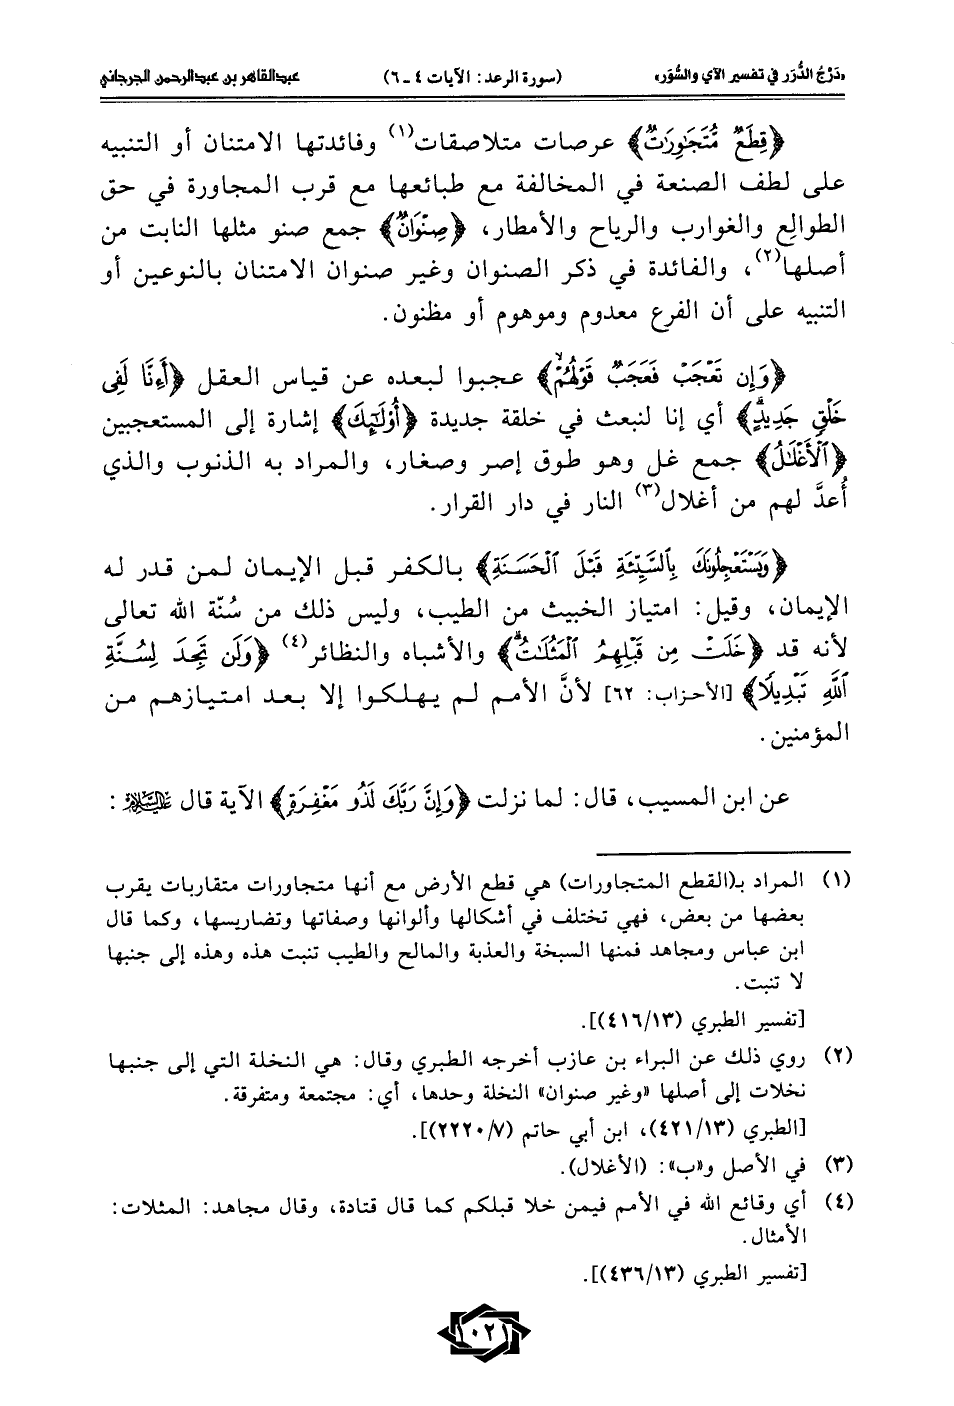 «دَرْجُ الدُّرَر في تفسير الآي والسُّوَر» (سورة الرعد: الآيات ٤ ـ ٦) عبدالقاهر بن عبدالرحمن الجرجاني
﴿قِطَعٌ مُّتَجَٰوِرَٰتٌ﴾ عرصات متلاصقات(١) وفائدتها الامتنان أو التنبيه
على لطف الصنعة في المخالفة مع طبائعها مع قرب المجاورة في حق
الطوالع والغوارب والرياح والأمطار، ﴿صِنْوَانٌ﴾ جمع صنو مثلها النابت من
أصلها(٢)، والفائدة في ذكر الصنوان وغير صنوان الامتنان بالنوعين أو
التنبيه على أن الفرع معدوم وموهوم أو مظنون.
﴿وَإِن تَعْجَبْ فَعَجَبٌ قَوْلُهُمْ﴾ عجبوا لبعده عن قياس العقل ﴿أَءِنَّا لَفِى
خَلْقٍ جَدِيدٍ﴾ أي إنا لنبعث في خلقة جديدة ﴿أُوْلَٰٓئِكَ﴾ إشارة إلى المستعجبين
﴿ٱلْأَغْلَٰلُ﴾ جمع غل وهو طوق إصر وصغار، والمراد به الذنوب والذي
أُعدَّ لهم من أغلال(٣) النار في دار القرار.
﴿وَيَسْتَعْجِلُونَكَ بِٱلسَّيِّئَةِ قَبْلَ ٱلْحَسَنَةِ﴾ بالكفر قبل الإيمان لمن قدر له
الإيمان، وقيل: امتياز الخبيث من الطيب، وليس ذلك من سُنّة الله تعالى
لأنه قد ﴿خَلَتْ مِن قَبْلِهِمُ ٱلْمَثُلَٰتُ﴾ والأشباه والنظائر(٤) ﴿وَلَن تَجِدَ لِسُنَّةِ
ٱللَّهِ تَبْدِيلًا﴾ [الأحزاب: ٦٢] لأنَّ الأمم لم يهلكوا إلا بعد امتيازهم من
المؤمنين.
عن ابن المسيب، قال: لما نزلت ﴿وَإِنَّ رَبَّكَ لَذُو مَغْفِرَةٍ﴾ الآية قال عليه السلام:
(١) المراد بـ(القطع المتجاورات) هي قطع الأرض مع أنها متجاورات متقاربات يقرب
بعضها من بعض، فهي تختلف في أشكالها وألوانها وصفاتها وتضاريسها، وكما قال
ابن عباس ومجاهد فمنها السبخة والعذبة والمالح والطيب تنبت هذه وهذه إلى جنبها
لا تنبت.
[تفسير الطبري (٤١٦/١٣)].
(٢) روي ذلك عن البراء بن عازب أخرجه الطبري وقال: هي النخلة التي إلى جنبها
نخلات إلى أصلها «وغير صنوان» النخلة وحدها، أي: مجتمعة ومتفرقة.
[الطبري (٤٢١/١٣)، ابن أبي حاتم (٢٢٢٠/٧)].
(٣) في الأصل و«ب»: (الأغلال).
(٤) أي وقائع الله في الأمم فيمن خلا قبلكم كما قال قتادة، وقال مجاهد: المثلات:
الأمثال.
[تفسير الطبري (٤٣٦/١٣)].
١٠٢١